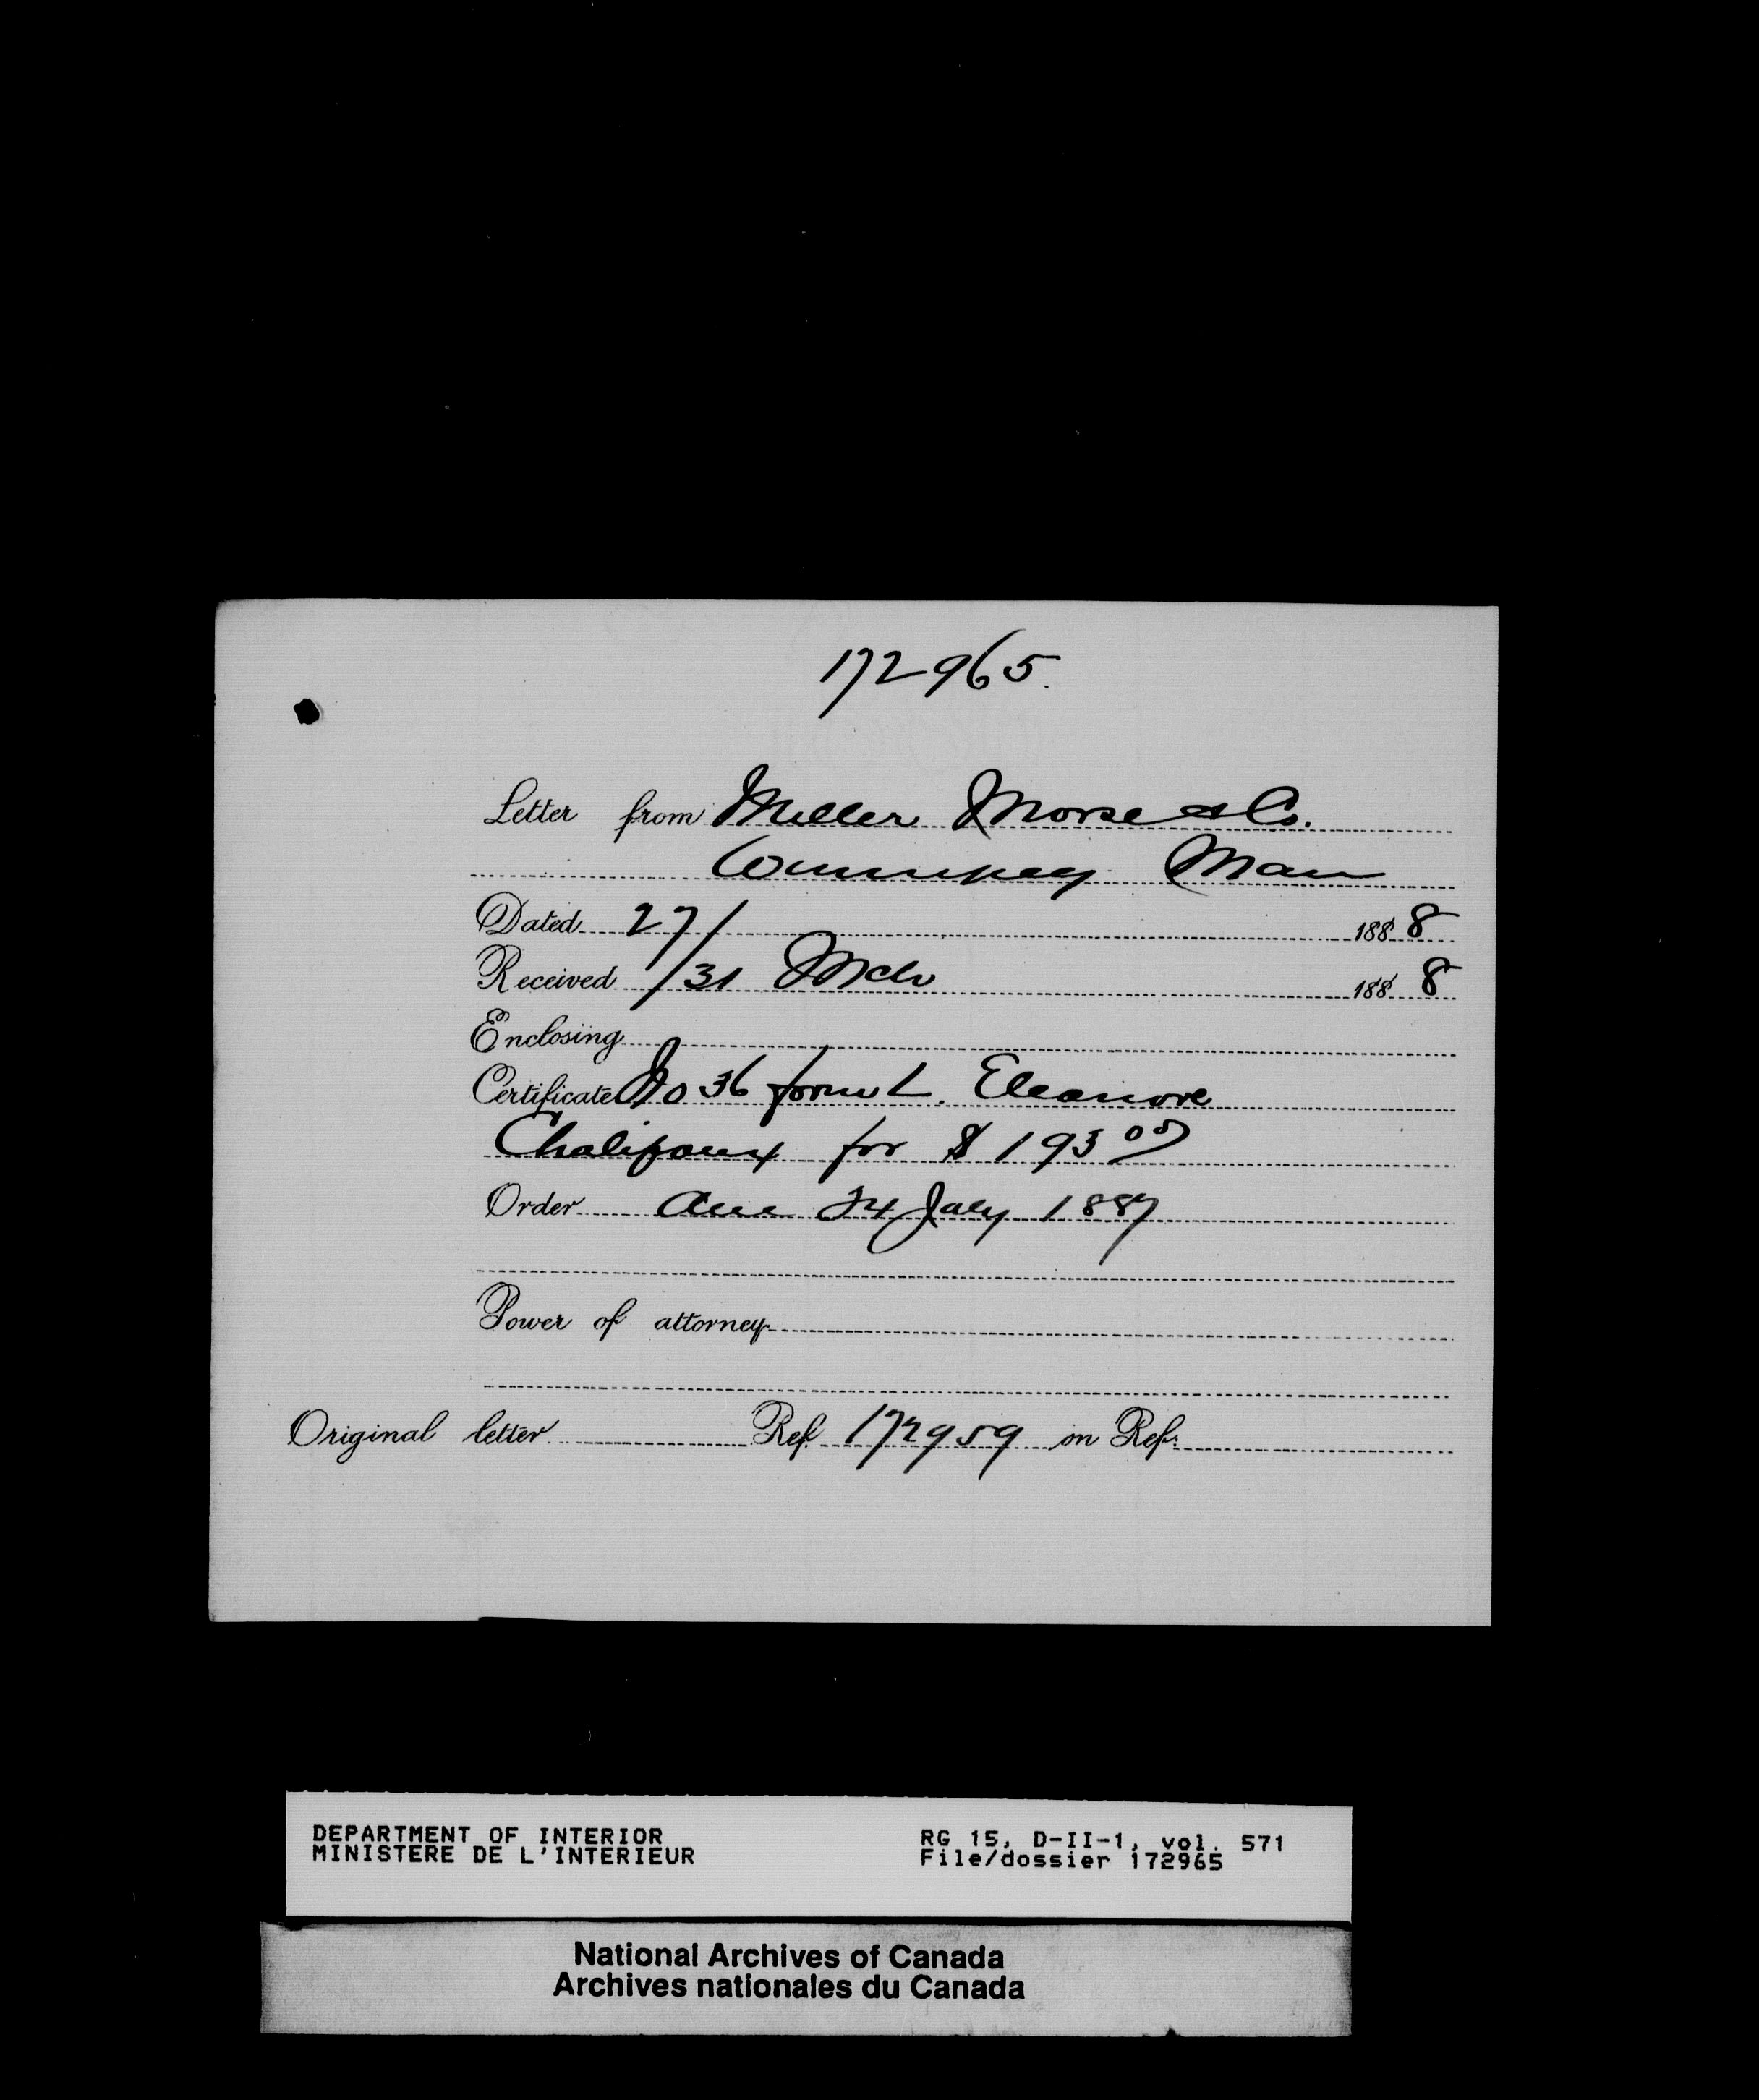 172965.
Letter from Miller Morse & Co.
Winnipeg Man
Dated 27/ 1888
Received /31 Mch 1888
Enclosing
Certificate No 36 form L. Eleanore
Chalifoux for $ 193 00
Order 24 July 1887
Power of attorney
Original letter Ref 172959 in Ref.
DEPARTMENT OF INTERIOR
MINISTERE DE L'INTERIEUR
RG 15, D-II-1, vol. 571
File/dossier 172965
National Archives of Canada
Archives nationales du Canada